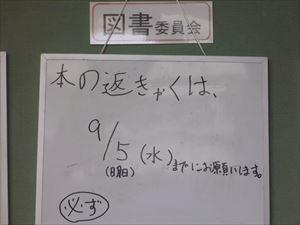 図書委員会
本の返きゃくは、
9/5(水)までにお願いします。
(明日)
必ず